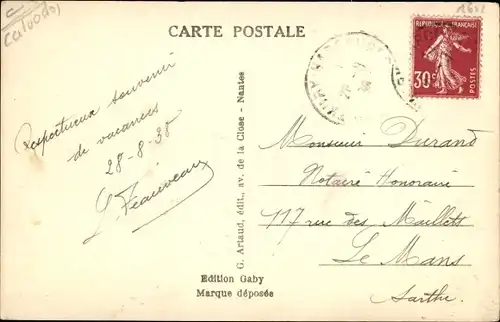 CARTE POSTALE
REPUBLIQUE FRANÇAISE
30c
POSTES
Respectueux souvenir
de vacances
28-8-38
G. Artaud, édit., av. de la Close - Nantes
Monsieur Durand
Notaire Honoraire
117 rue des Maillets
Le Mans
Sarthe
Edition Gaby
Marque déposée